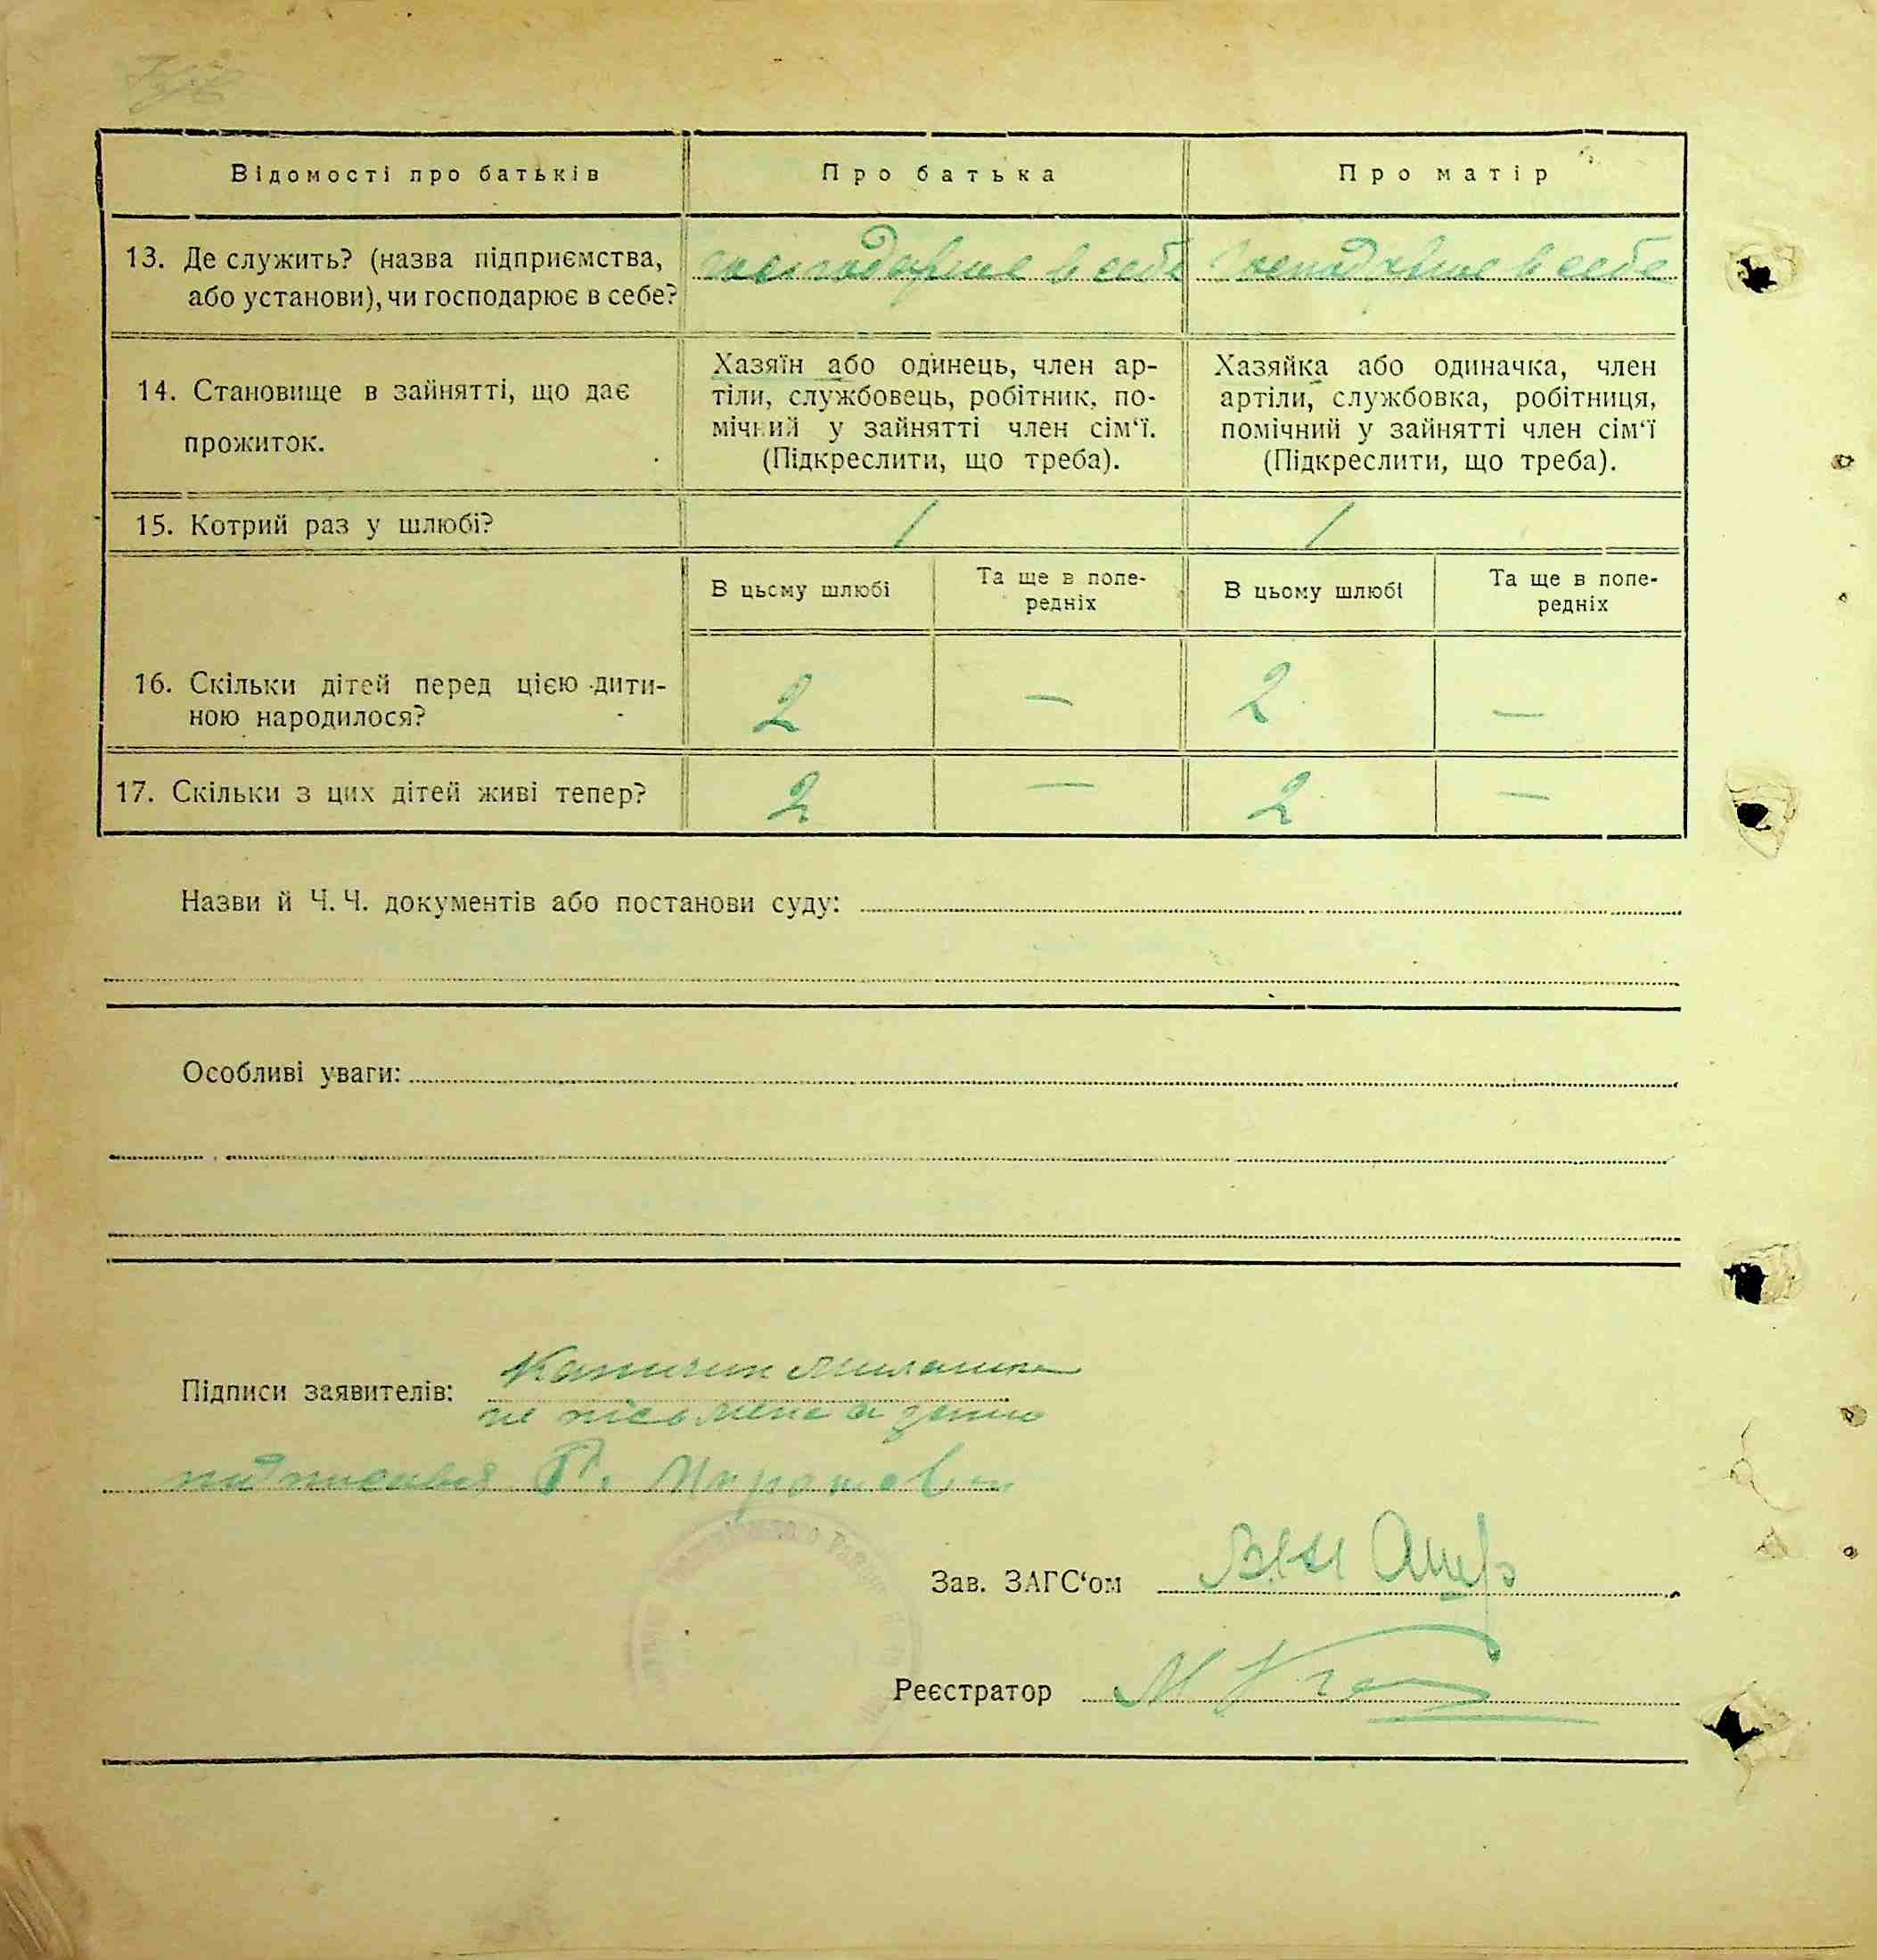 Відомості про батьків
Про батька
Про матір
13. Де служить? (назва підприємства,
або установи), чи господарює в себе?
господарює в себе
господарює в себе
14. Становище в зайнятті, що дає
прожиток.
Хазяїн або одинець, член ар-
тіли, службовець, робітник, по-
мічний у зайнятті член сім‘ї.
(Підкреслити, що треба).
Хазяйка або одиначка, член
артіли, службовка, робітниця,
помічний у зайнятті член сім‘ї
(Підкреслити, що треба).
15. Котрий раз у шлюбі?
1
1
В цьому шлюбі
Та ще в попе-
редніх
В цьому шлюбі
Та ще в попе-
редніх
16. Скільки дітей перед цією дити-
ною народилося?
2 — 2 —
17. Скільки з цих дітей живі тепер?
2 — 2 —
Назви й Ч. Ч. документів або постанови суду:
Особливі уваги:
Підписи заявителів:
Зав. ЗАГС‘ом
Реєстратор